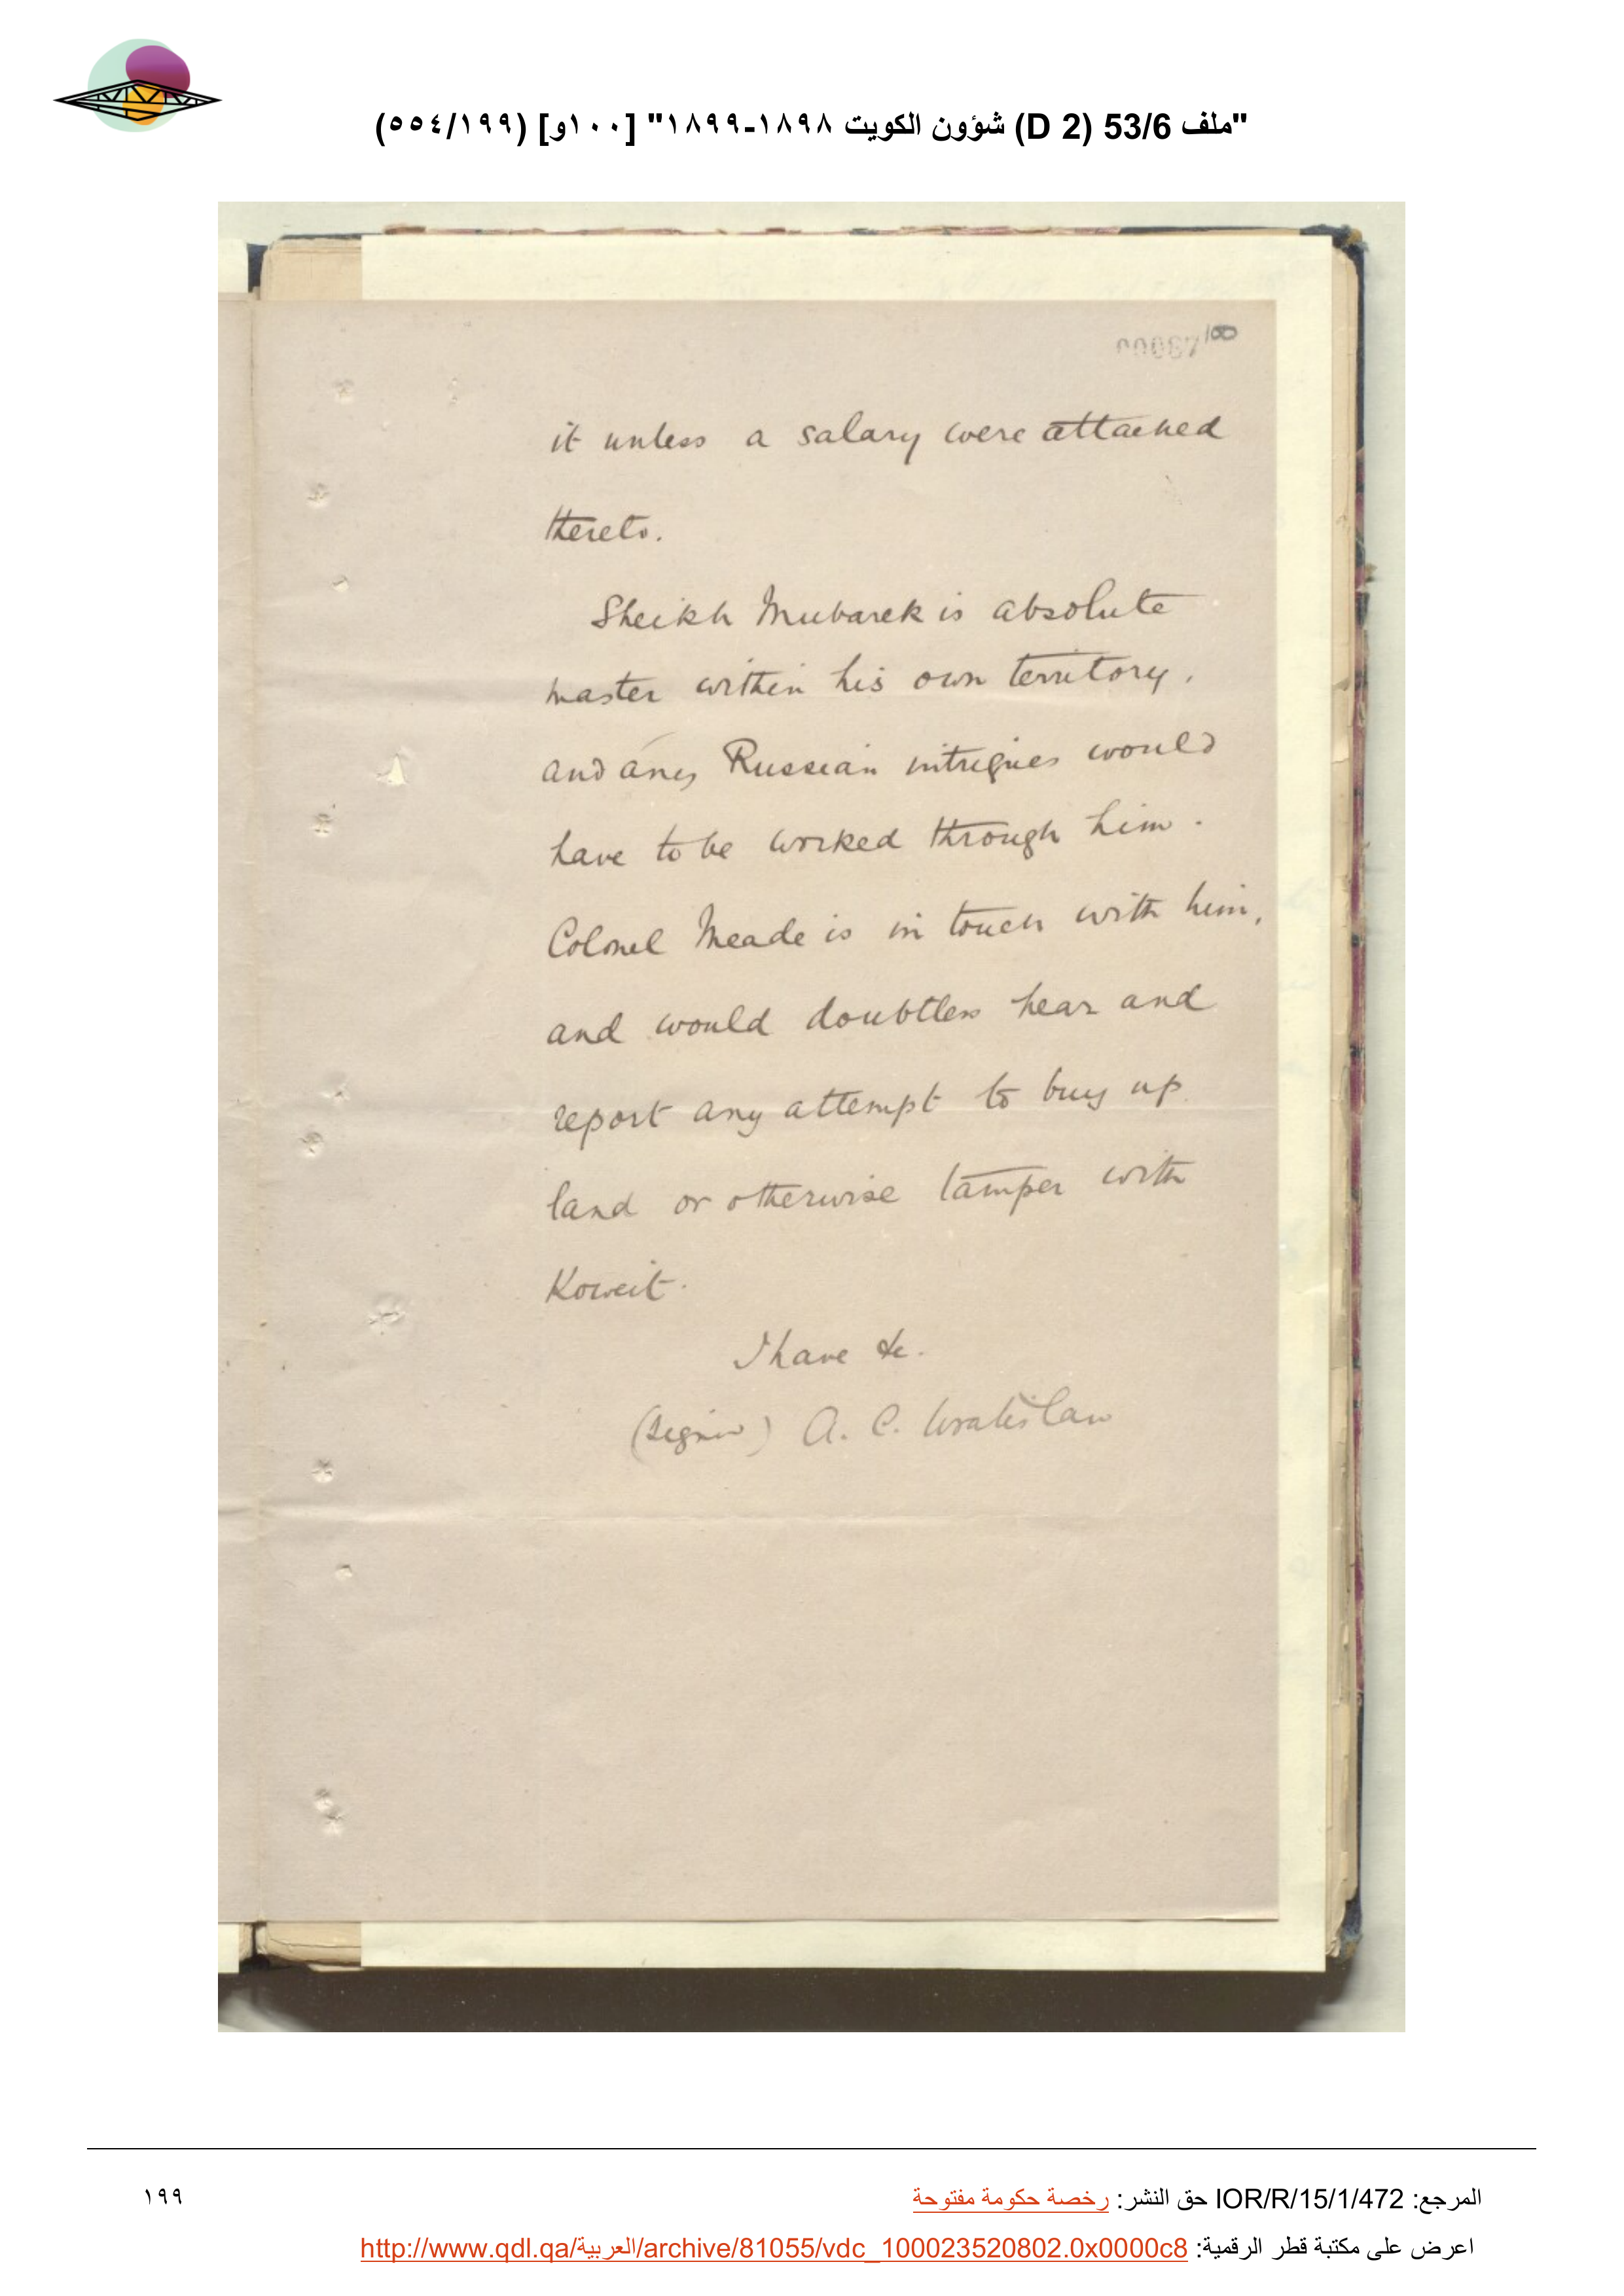 "ملف 53/6 (D 2) شؤون الكويت ١٨٩٨-١٨٩٩" [١٠٠و] (٥٥٤/١٩٩)
100
it unless a salary were attached
thereto.
Sheikh Mubarek is absolute
master within his own territory,
and any Russian intrigues would
have to be worked through him.
Colonel Meade is in touch with him,
and would doubtless hear and
report any attempt to buy up
land or otherwise tamper with
Koweit.
I have &c.
(signed) A. C. Wratislaw
المرجع: IOR/R/15/1/472 حق النشر: رخصة حكومة مفتوحة
١٩٩
اعرض على مكتبة قطر الرقمية: http://www.qdl.qa/العربية/archive/81055/vdc_100023520802.0x0000c8